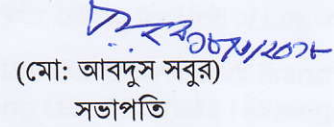 (মো: আবদুস সবুর)
সভাপতি